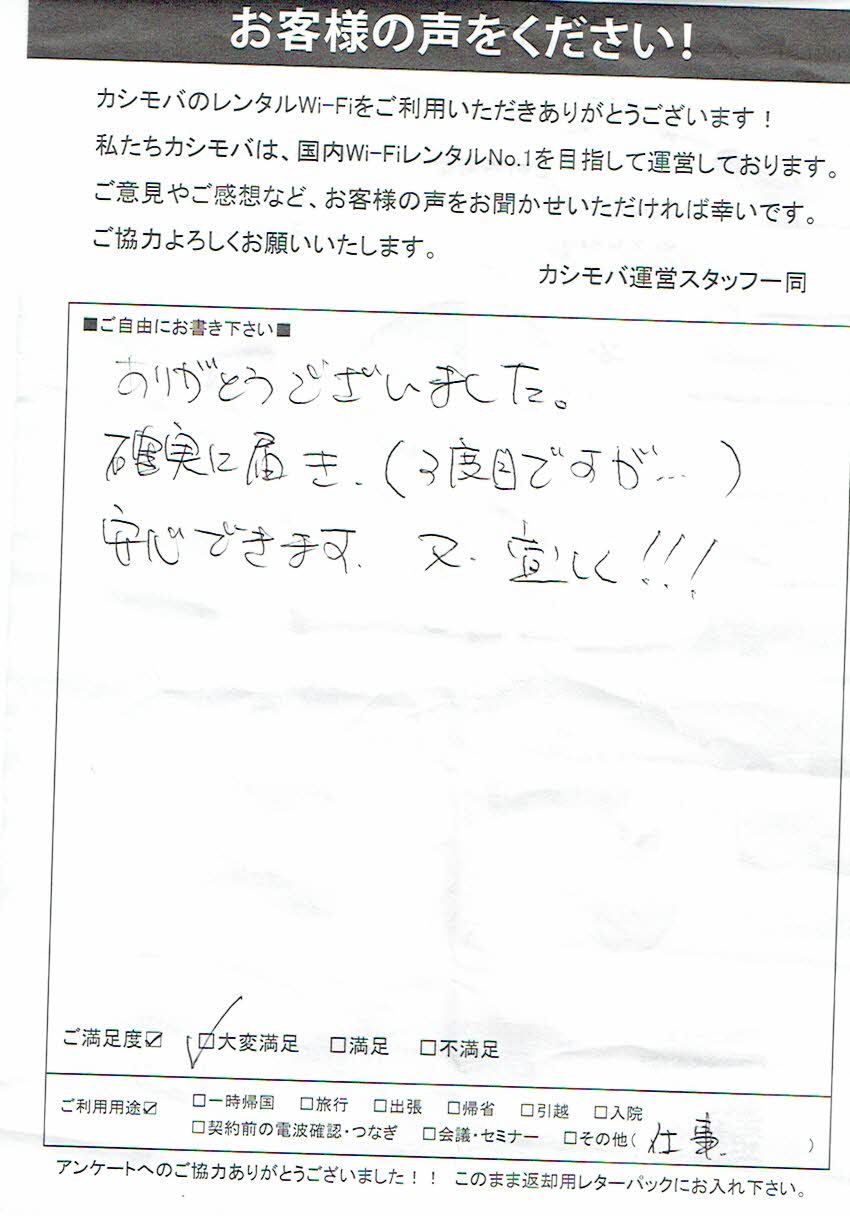 お客様の声をください!
カシモバのレンタルWi-Fiをご利用いただきありがとうございます!
私たちカシモバは、国内Wi-FiレンタルNo.1を目指して運営しております。
ご意見やご感想など、お客様の声をお聞かせいただければ幸いです。
ご協力よろしくお願いいたします。
カシモバ運営スタッフ一同
■ご自由にお書き下さい■
ありがとうございました。
確実に届き、(3度目ですが…)
安心できます。又、宜しく!!!
ご満足度☑ □大変満足 □満足 □不満足
ご利用用途☑ □一時帰国 □旅行 □出張 □帰省 □引越 □入院
□契約前の電波確認・つなぎ □会議・セミナー □その他(仕事)
アンケートへのご協力ありがとうございました!! このまま返却用レターパックにお入れ下さい。